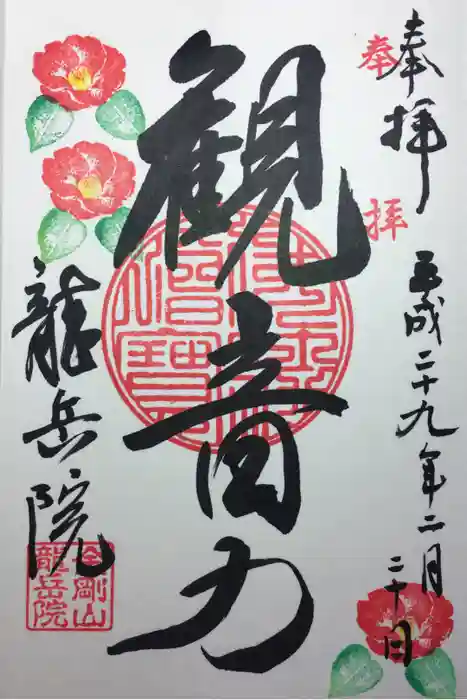 奉拝
奉
拝
平成二十九年二月
二十日
観音力
龍岳院
金剛山
龍岳院